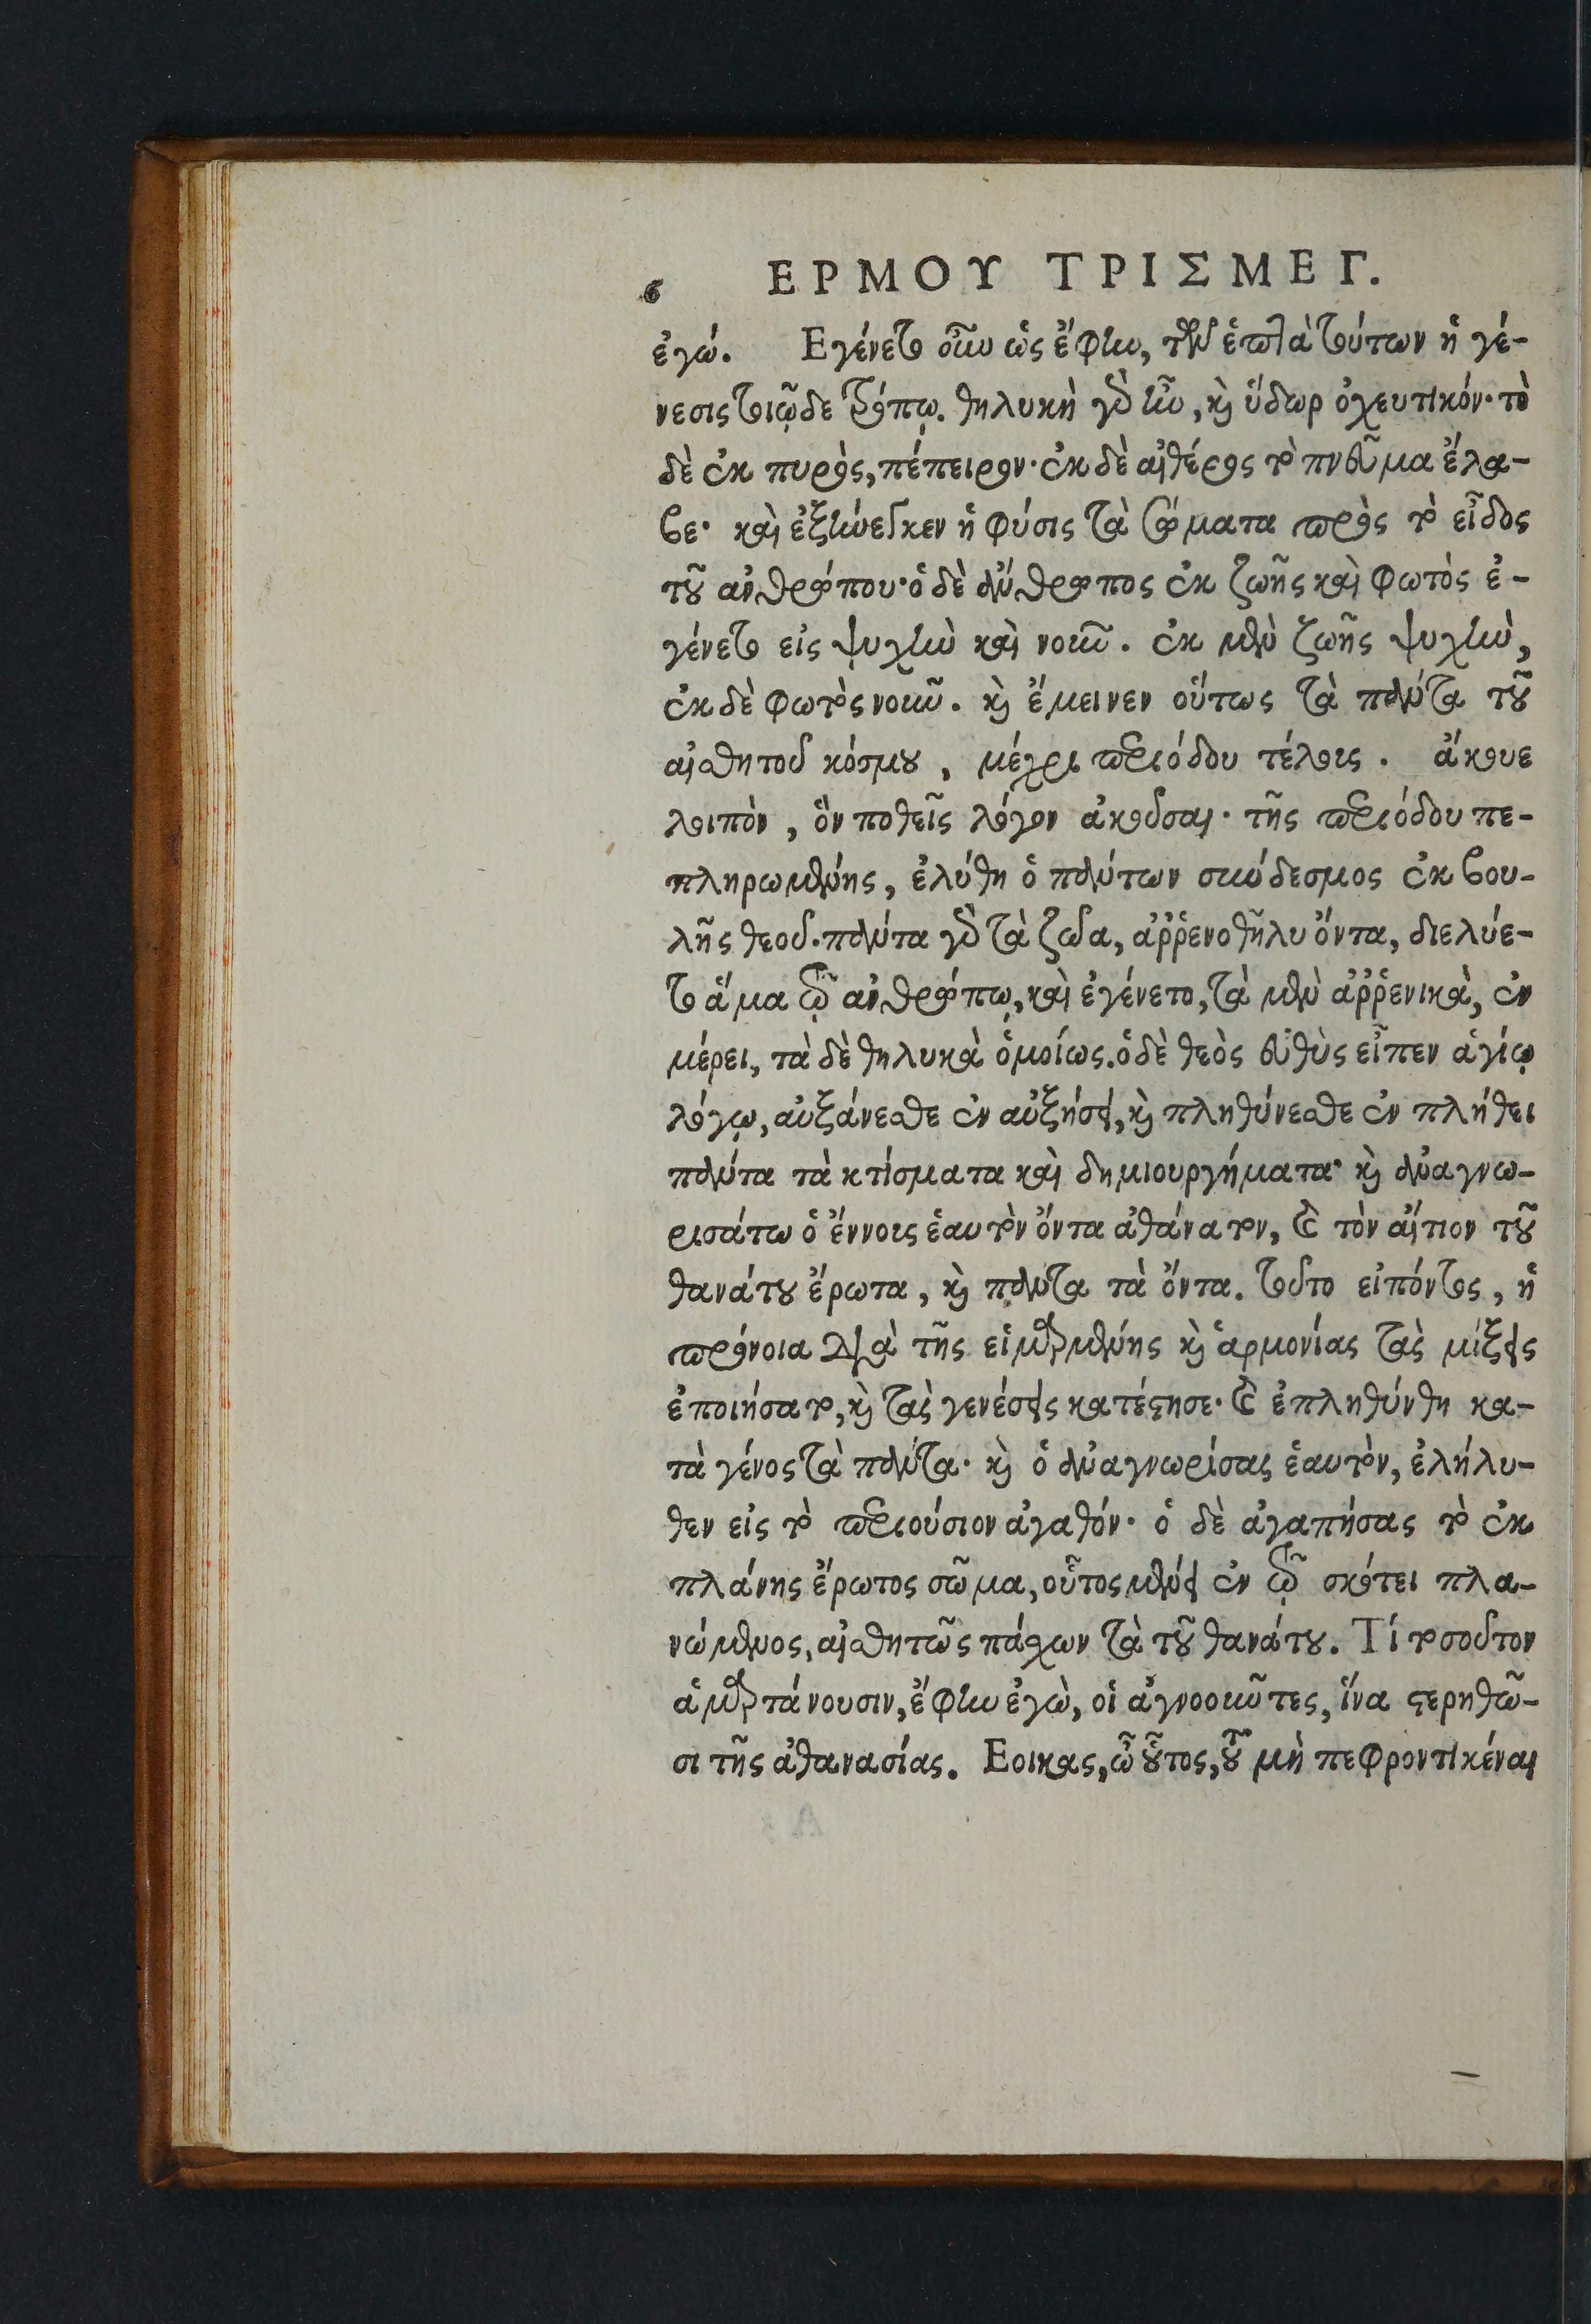 6 ΕΡΜΟΥ ΤΡΙΣΜΕΓ.
ἐγώ. Εγένετο οὖν ὡς ἔφην, τῶν ἑπτὰ τούτων ἡ γέ-
νεσις τοιῷδε τρόπῳ. θηλυκὴ γὸ ἦν, κὴ ὕδωρ ὀχευτικόν· τὸ
δὲ ἐκ πυρὸς, πέπειρον· ἐκ δὲ αἰθέρος τὸ πνεῦμα ἔλα-
βε· καὶ ἐξήνεγκεν ἡ φύσις τὰ σώματα πρὸς τὸ εἶδος
τοῦ ἀνθρώπου· ὁ δὲ ἄνθρωπος ἐκ ζωῆς καὶ φωτὸς ἐ-
γένετο εἰς ψυχὴν καὶ νοῦν. ἐκ μὲν ζωῆς ψυχὴν,
ἐκ δὲ φωτὸς νοῦν. καὶ ἔμεινεν οὕτως τὰ πάντα τοῦ
αἰσθητοῦ κόσμου, μέχρι περιόδου τέλους. ἄκουε
λοιπὸν, ὃν ποθεῖς λόγον ἀκοῦσαι· τῆς περιόδου πε-
πληρωμένης, ἐλύθη ὁ πάντων σύνδεσμος ἐκ βου-
λῆς θεοῦ· πάντα γὰρ τὰ ζῶα, ἀῤῥενοθῆλυ ὄντα, διελύε-
το ἅμα τῷ ἀνθρώπῳ, καὶ ἐγένετο, τὰ μὲν ἀῤῥενικὰ, ἐν
μέρει, τὰ δὲ θηλυκὰ ὁμοίως. ὁ δὲ θεὸς εὐθὺς εἶπεν ἁγίῳ
λόγῳ, αὐξάνεσθε ἐν αὐξήσει, καὶ πληθύνεσθε ἐν πλήθει
πάντα τὰ κτίσματα καὶ δημιουργήματα· καὶ ἀναγνω-
ρισάτω ὁ ἔννους ἑαυτὸν ὄντα ἀθάνατον, καὶ τὸν αἴτιον τοῦ
θανάτου ἔρωτα, καὶ πάντα τὰ ὄντα. τοῦτο εἰπόντος, ἡ
πρόνοια διὰ τῆς εἱμαρμένης καὶ ἁρμονίας τὰς μίξεις
ἐποιήσατο, καὶ τὰς γενέσεις κατέστησε· καὶ ἐπληθύνθη κα-
τὰ γένος τὰ πάντα· καὶ ὁ ἀναγνωρίσας ἑαυτὸν, ἐλήλυ-
θεν εἰς τὸ περιούσιον ἀγαθόν· ὁ δὲ ἀγαπήσας τὸ ἐκ
πλάνης ἔρωτος σῶμα, οὗτος μένει ἐν τῷ σκότει πλα-
νώμενος, αἰσθητῶς πάσχων τὰ τοῦ θανάτου. Τί τοσοῦτον
ἁμαρτάνουσιν, ἔφην ἐγὼ, οἱ ἀγνοοῦντες, ἵνα στερηθῶ-
σι τῆς ἀθανασίας. Εοικας, ὦ οὗτος, τοῦ μὴ πεφροντικέναι